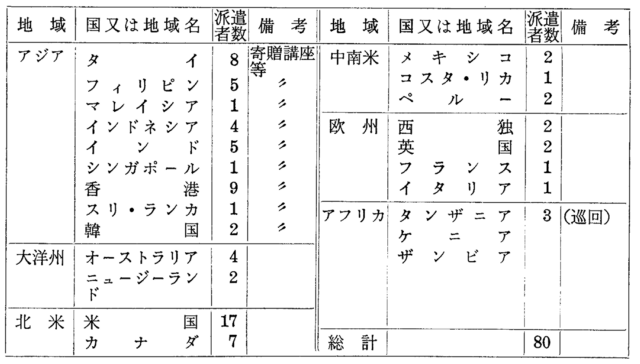 地域 国又は地域名 派遣者数 備考
アジア タイ 8 寄贈講座等
フィリピン 5 〃
マレイシア 1 〃
インドネシア 4 〃
インド 5 〃
シンガポール 1 〃
香港 9 〃
スリ・ランカ 1 〃
韓国 2 〃
大洋州 オーストラリア 4
ニュージーランド 2
北米 米国 17
カナダ 7
地域 国又は地域名 派遣者数 備考
中南米 メキシコ 2
コスタ・リカ 1
ペルー 2
欧州 西独 2
英国 2
フランス 1
イタリア 1
アフリカ タンザニア 3 (巡回)
ケニア
ザンビア
総計 80